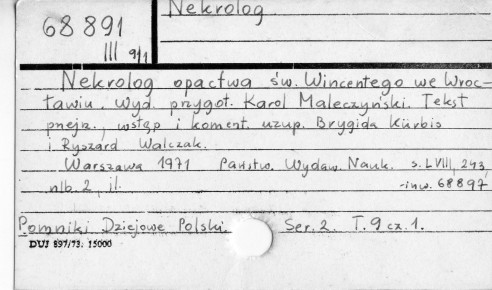 Nekrolog
68 891
III 9/1
Nekrolog opactwa św. Wincentego we Wroc-
ławiu. Wyd. przygot. Karol Maleczyński. Tekst
przejrz., wstęp i koment. uzup. Brygida Kürbis
i Ryszard Walczak.
Warszawa 1971 Państw. Wydaw. Nauk. s. LVIII, 243,
nlb. 2, il. -inw. 68897
Pomniki Dziejowe Polski. Ser. 2. T. 9 cz. 1.
DUJ 897/73. 15000